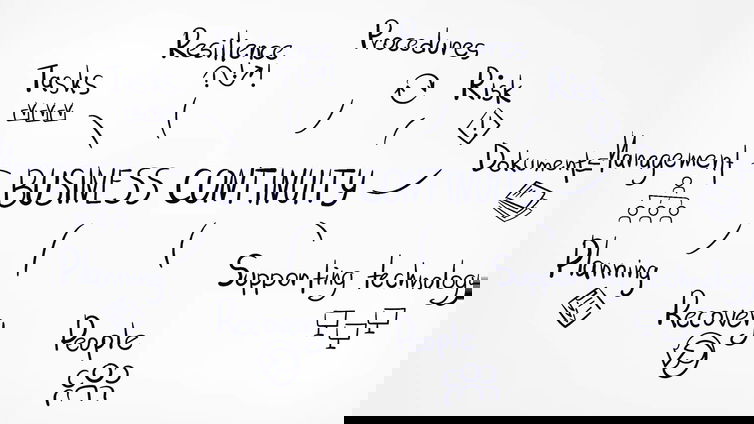 Resilience
Procedures
Tasks
Risk
Dokuments-Management
BUSINESS CONTINUITY
Planning
Supporting technology
Recovery
People